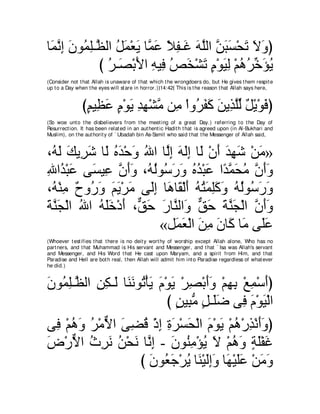 وَلاَ تَحْسَبَنَّ اللَّهَ غَـفِلاً عَمَّا يَعْمَلُ الظَّـلِمُونَ إِنَّمَا
يُؤَخِّرُهُمْ لِيَوْمٍ تَشْخَصُ فِيهِ الأَبْصَـرُ )
(Consider not that Allah is unaware of that which the wrongdoers do, but He gives them respite
up to a Day when the eyes will stare in horror.)(14:42) This is the reason that Allah says here,
(فَوْيْلٌ لِّلَّذِينَ كَفَرُواْ مِن مَّشْهِدِ يَوْمٍ عَظِيمٍ)
(So woe unto the disbelievers from the meeting of a great Day.) referring to the Day of
Resurrection. It has been related in an authentic Hadith that is agreed upon (in Al-Bukhari and
Muslim), on the authority of `Ubadah bin As-Samit who said that the Messenger of Allah said,
«مَنْ شَهِدَ أَنْ لَا إِلَهَ إِلَّا اللهُ وَحْدَهُ لَا شَرِيكَ لَهُ،
وَأَنَّ مُحَمَّدًا عَبْدُهُ وَرَسُولُهُ، وَأَنَّ عِيسَى عَبْدُاللهِ
وَرَسُولُهُ وَكَلِمَتُهُ أَلْقَاهَا إِلَى مَرْيَمَ وَرُوحٌ مِنْهُ،
وَأَنَّ الْجَنَّةَ حَقٌّ وَالنَّارَ حَقٌّ، أَدْخَلَهُ اللهُ الْجَنَّةَ
عَلَى مَا كَانَ مِنَ الْعَمَل»
(Whoever testifies that there is no deity worthy of worship except Allah alone, Who has no
partners, and that Muhammad is His servant and Messenger, and that `Isa was Allah's servant
and Messenger, and His Word that He cast upon Maryam, and a spirit from Him, and that
Paradise and Hell are both real, then Allah will admit him into Paradise regardless of whatever
he did.)
(أَسْمِعْ بِهِمْ وَأَبْصِرْ يَوْمَ يَأْتُونَنَا لَـكِنِ الظَّـلِمُونَ
الْيَوْمَ فِى ضَلَـلٍ مُّبِينٍ )
(وَأَنْذِرْهُمْ يَوْمَ الْحَسْرَةِ إِذْ قُضِىَ الاٌّمْرُ وَهُمْ فِى
غَفْلَةٍ وَهُمْ لاَ يُؤْمِنُونَ - إِنَّا نَحْنُ نَرِثُ الاٌّرْضَ
وَمَنْ عَلَيْهَا وَإِلَيْنَا يُرْجَعُونَ )